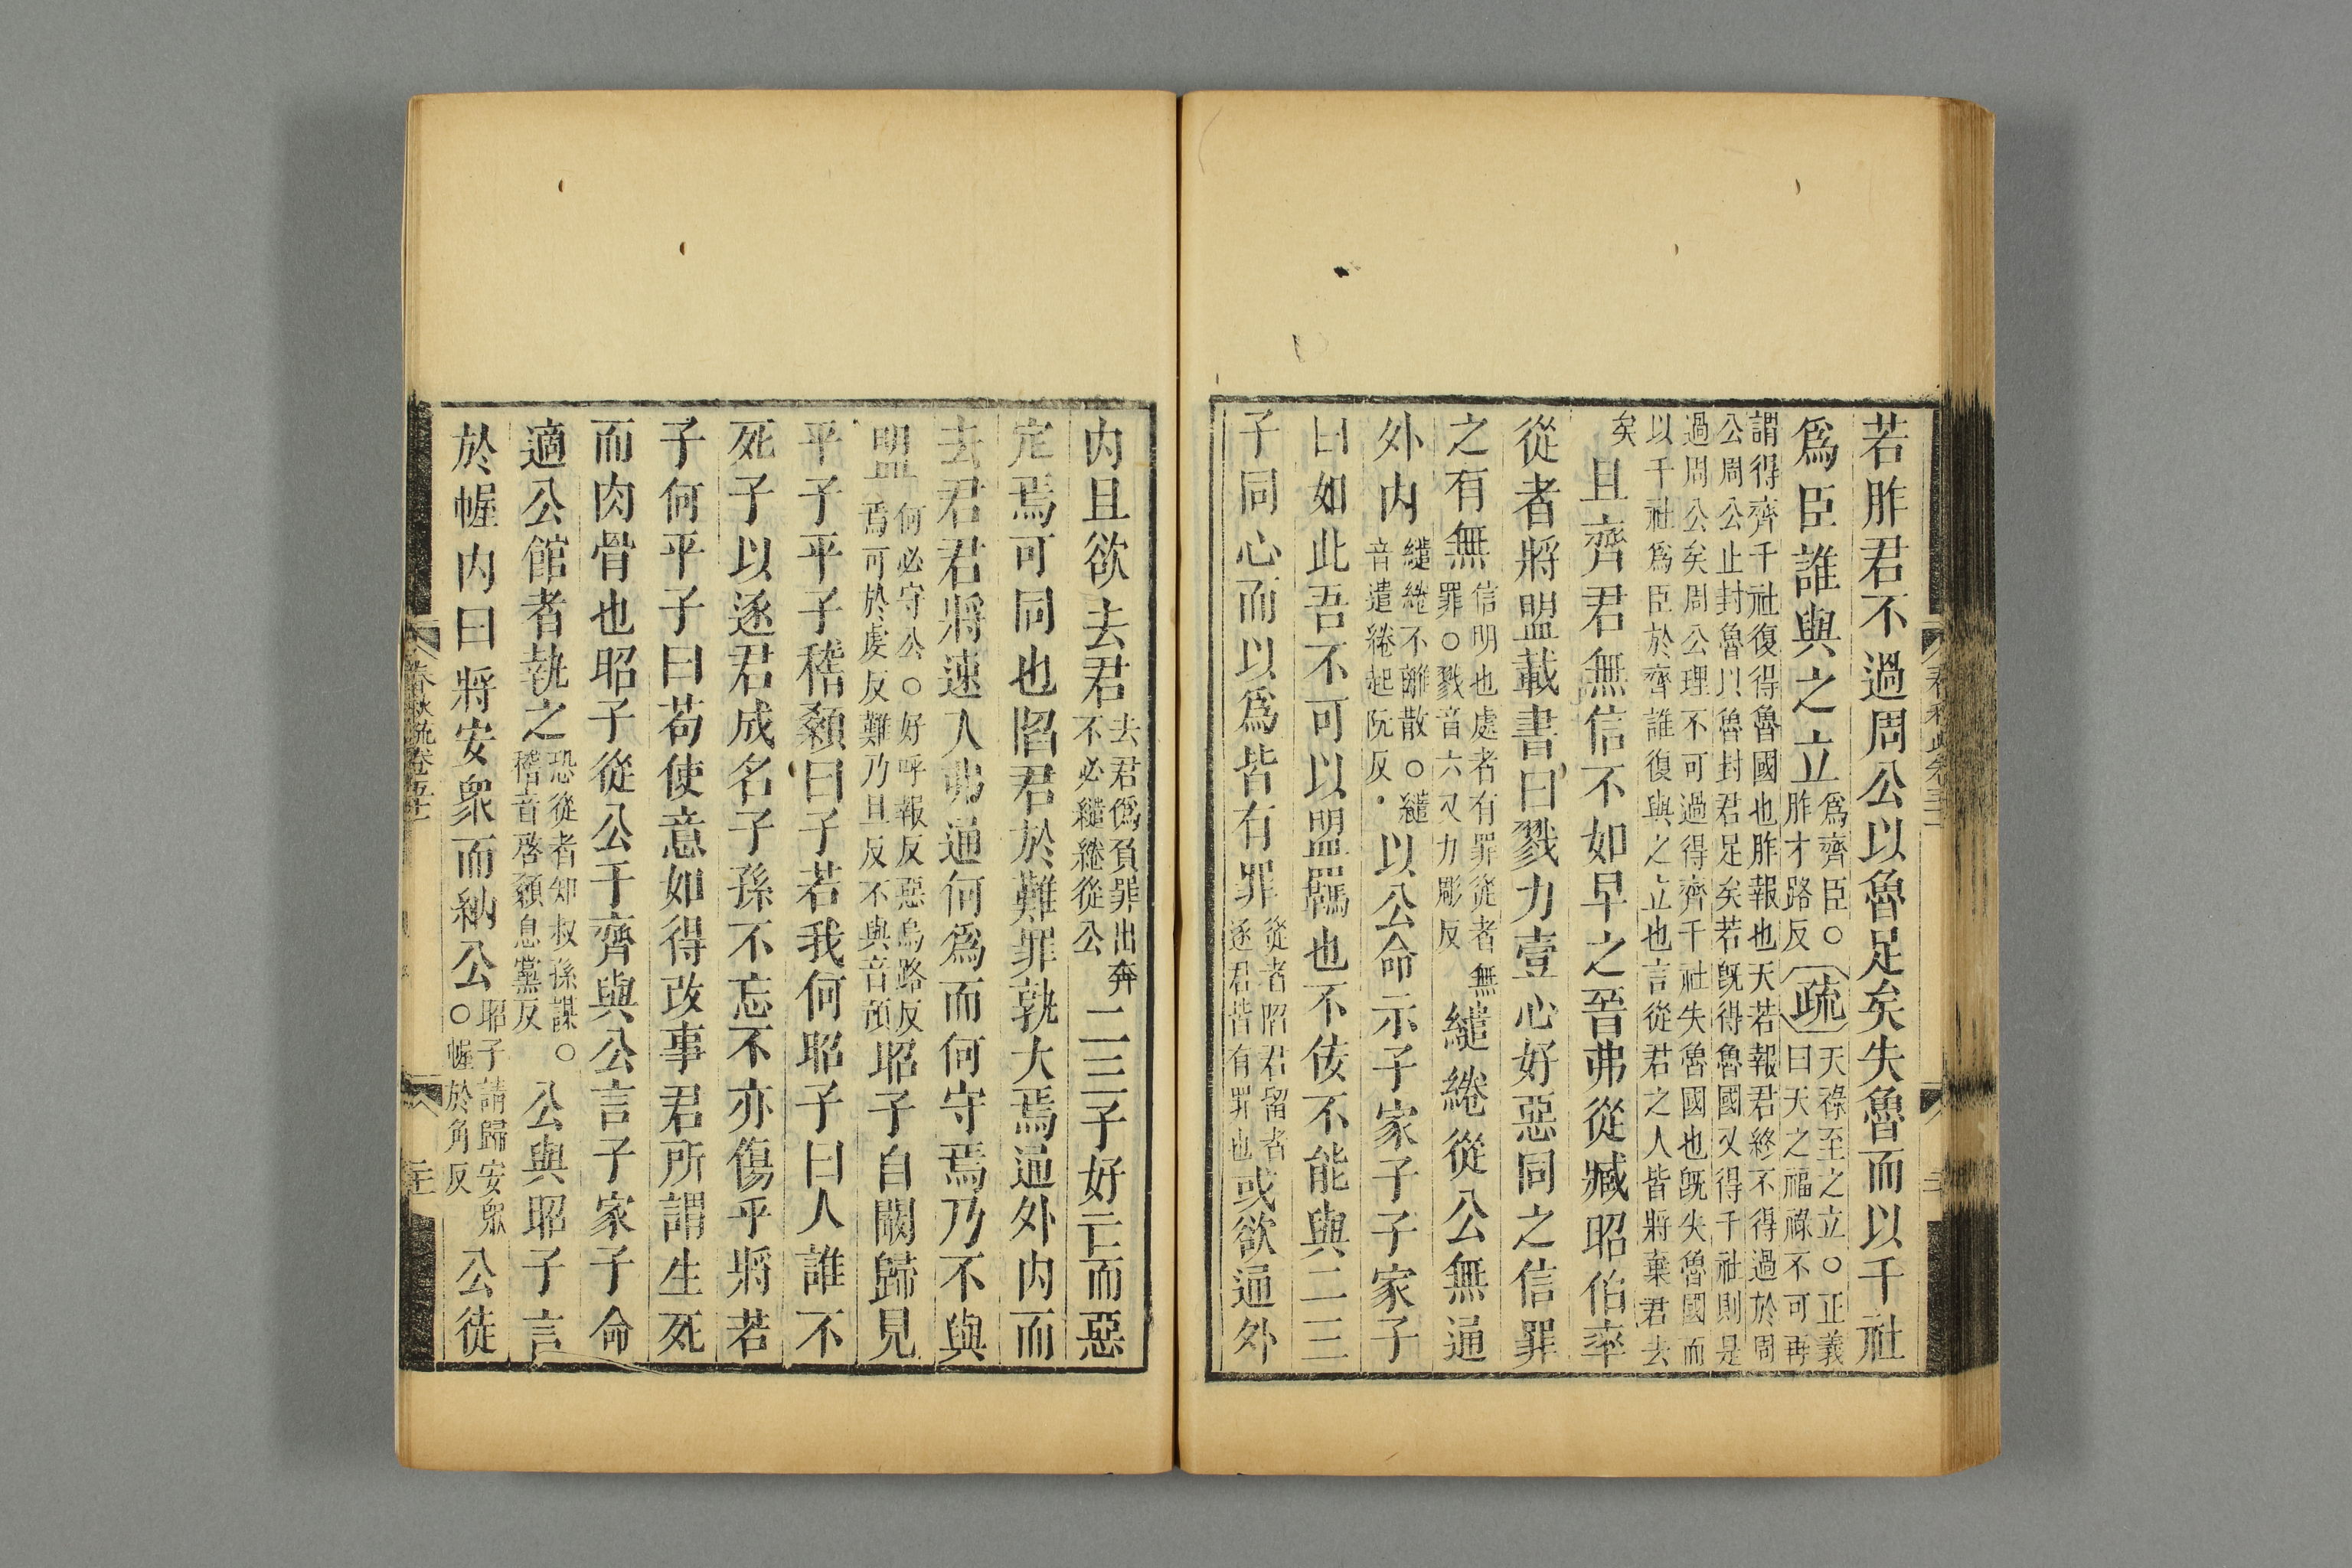 若胙君不過周公以魯足矣失魯而以千社
爲臣誰與之立
爲齊臣○
胙才路反
疏
天祿至之立○正義
曰天之福祿不可再
謂得齊千社復得魯國也胙報也天若報君終不得過於周
公周公止封魯以魯封君足矣若旣得魯國又得千社則是
過周公矣周公理不可過得齊千社失魯國也旣失魯國而
以千社爲臣於齊誰復與之立也言從君之人皆將棄君去
矣
且齊君無信不如早之晉弗從臧昭伯率
從者將盟載書曰戮力壹心好惡同之信罪
之有無
信明也處者有罪從者無
罪○戮音六又力彫反
繾綣從公無通
外内
繾綣不離散○繾
音遣綣起阮反
以公命示子家子子家子
曰如此吾不可以盟羈也不佞不能與二三
子同心而以爲皆有罪
從者陷君留者
逐君皆有罪也
或欲通外
内且欲去君
去君僞負罪出奔
不必繾綣從公
二三子好亡而惡
定焉可同也陷君於難罪孰大焉通外内而
去君君將速入弗通何爲而何守焉乃不與
盟
何必守公○好呼報反惡烏路反
焉可於虔反難乃旦反不與音預
昭子自闞歸見
平子平子稽顙曰子若我何昭子曰人誰不
死子以逐君成名子孫不忘不亦傷乎將若
子何平子曰苟使意如得改事君所謂生死
而肉骨也昭子從公于齊與公言子家子命
適公館者執之
恐從者知叔孫謀○
稽音啓顙息黨反
公與昭子言
於幄内曰將安衆而納公
昭子請歸安衆
○幄於角反
公徒
春秋疏卷五十一